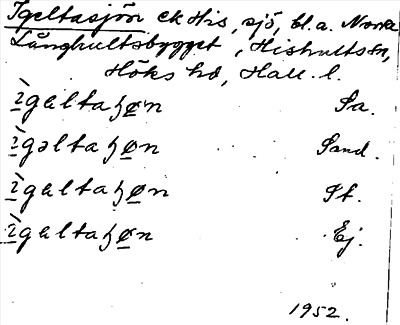 Igeltasjön ek His, sjö, bl.a. Norra
Långhultsbygget, Hishults sn,
Höks hd, Hall. l.
ìgæltaɧøn Sa.
ìgəltaɧøn Sand.
ìgæltaɧøn St.
ìgæltaɧøn Ej.
1952.